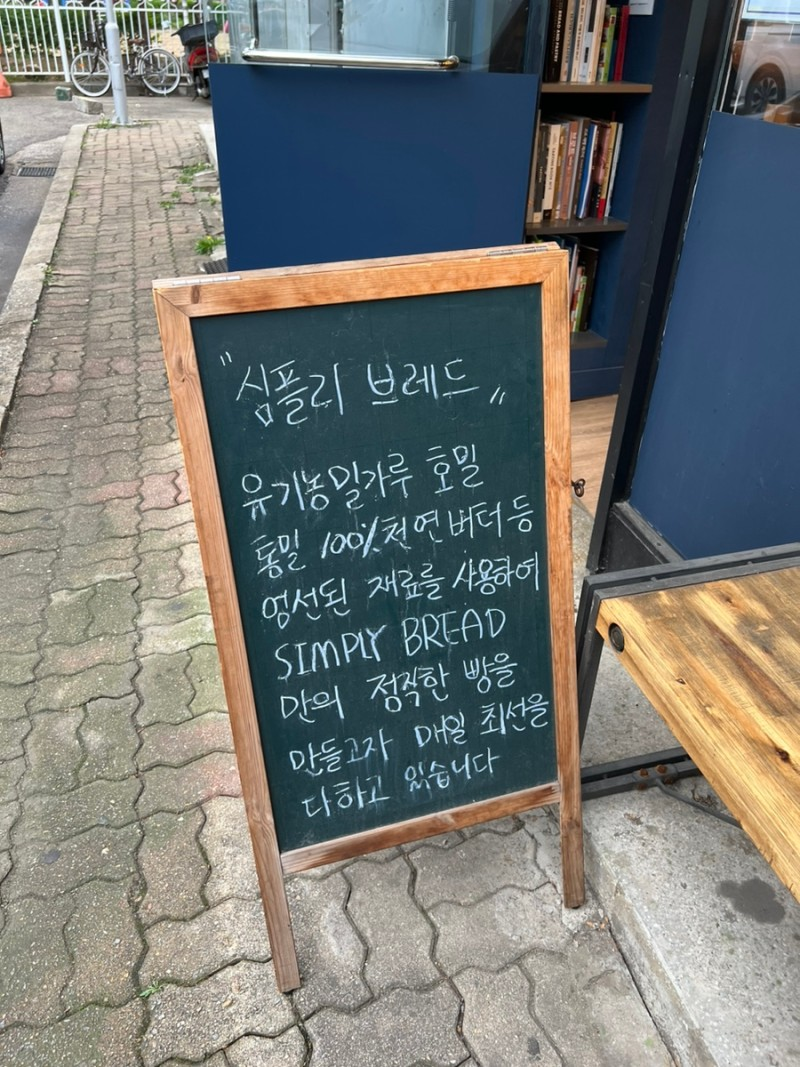 "심플리 브레드"
유기농밀가루 호밀
통밀 100%천연버터 등
엄선된 재료를 사용하여
SIMPLY BREAD
만의 정직한 빵을
만들고자 매일 최선을
다하고 있습니다